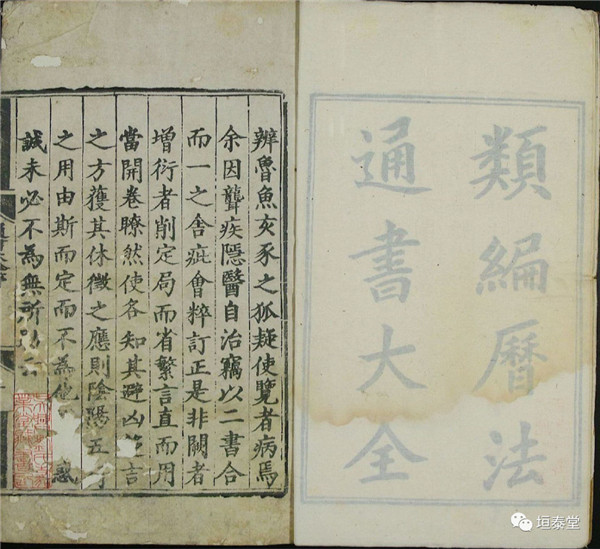 類編曆法
通書大全
辨魯魚亥豕之狐疑使覽者病焉
余因聾疾隱醫自治竊以二書合
而一之舍疵會粹訂正是非闕者
增衍者削定局而省繁言直而用
當開卷瞭然使各知其避凶言
之方獲其休徵之應則陰陽五
之用由斯而定而不為惑
誠未必不為無所云
垣泰堂